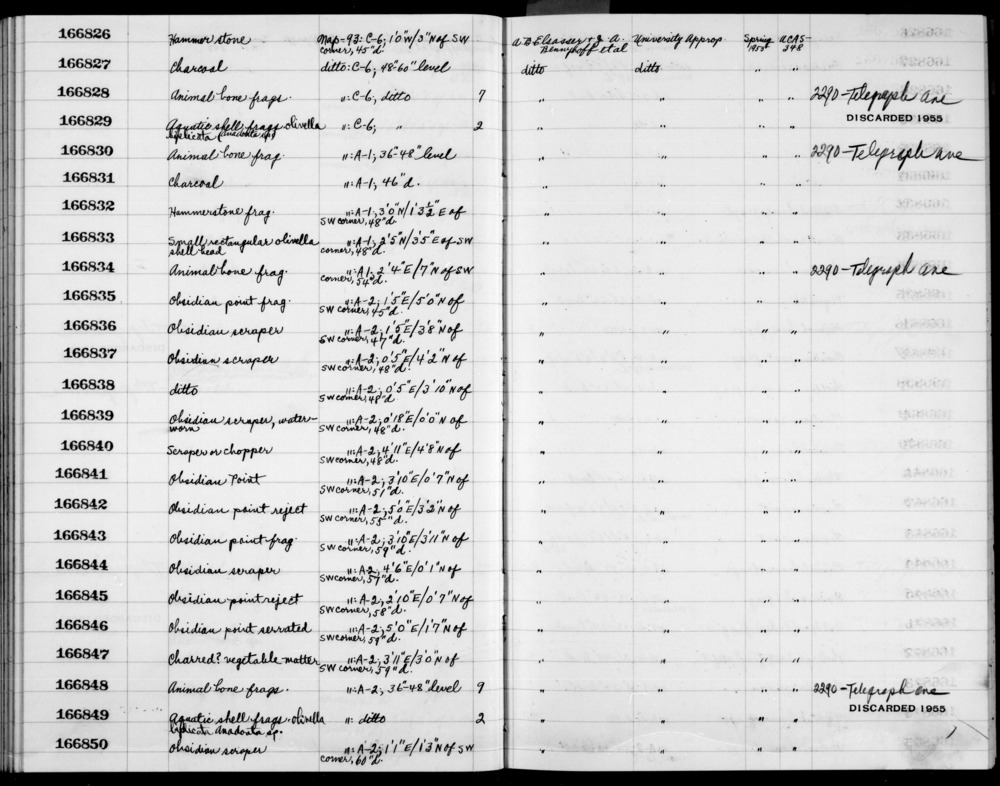 166826 Hammer stone Map-93: C-6; 1'0"W/3"N of SW corner, 45"d. A B Elsasser & J. A. Bennyhoff et al University Approp. Spring 1955 ACAS-248
166827 Charcoal ditto: C-6; 48"-60" level ditto ditto " "
166828 Animal bone frags. ": C-6; ditto 7 " " " " 2290-Telegraph ave
166829 Aquatic shell frags. olivella biplicata (anadonta sp) ": C-6; " 2 " " " " DISCARDED 1955
166830 Animal bone frag. ": A-1; 36"-48" level " " " " 2290-Telegraph ave
166831 Charcoal ": A-1; 46"d. " " " "
166832 Hammerstone frag. ": A-1; 3'0"N/1'3½"E of SW corner, 48"d. " " " "
166833 Small rectangular olivella shell bead ": A-1; 2'5"N/3'5"E of SW corner, 48"d. " " " "
166834 Animal bone frag. ": A 1; 2'4"E/7"N of SW corner, 54"d. " " " " 2290-Telegraph ave
166835 Obsidian point frag. ": A-2; 1'5"E/5'0"N of SW corner, 45"d. " " " "
166836 Obsidian scraper ": A-2; 1'5"E/3'8"N of SW corner, 47"d. " " " "
166837 Obsidian scraper ": A-2; 0'5"E/4'2"N of SW corner, 48"d. " " " "
166838 ditto ": A-2; 0'5"E/3'10"N of SW corner, 48"d. " " " "
166839 Obsidian scraper, water-worn ": A-2; 0'18"E/0'0"N of SW corner, 48"d. " " " "
166840 Scraper or chopper ": A-2; 4'11"E/4'8"N of SW corner, 48"d. " " " "
166841 Obsidian Point ": A-2; 3'10"E/0'7"N of SW corner, 51"d. " " " "
166842 Obsidian point reject ": A-2; 5'0"E/3'2"N of SW corner, 55"d. " " " "
166843 Obsidian point frag. ": A-2; 3'10"E/3'11"N of SW corner, 59"d. " " " "
166844 Obsidian scraper ": A-2; 4'6"E/0'1"N of SW corner, 57"d. " " " "
166845 Obsidian point reject ": A-2; 2'10"E/0'7"N of SW corner, 58"d. " " " "
166846 Obsidian point serrated ": A-2; 5'0"E/1'7"N of SW corner, 59"d. " " " "
166847 Charred? vegetable matter ": A-2; 3'11"E/3'0"N of SW corner, 59"d. " " " "
166848 Animal bone frags. ": A-2; 36"-48" level 9 " " " " 2290-Telegraph ave
166849 Aquatic shell frags. olivella biplicata anadonta sp. ": ditto 2 " " " " DISCARDED 1955
166850 Obsidian scraper ": A-2; 1'1"E/1'3"N of SW corner, 60"d. " " " "